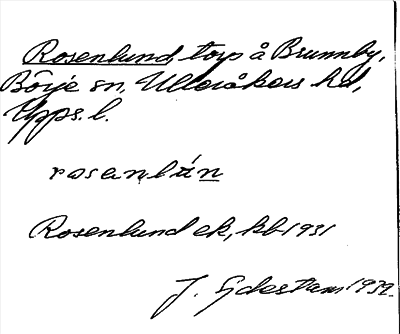 Rosenlund, torp å Brunnby,
Börje sn, Ulleråkers hd,
Upps. l.
rosenlún
Rosenlund ek, kb 1931
J. Gdestam 1932.